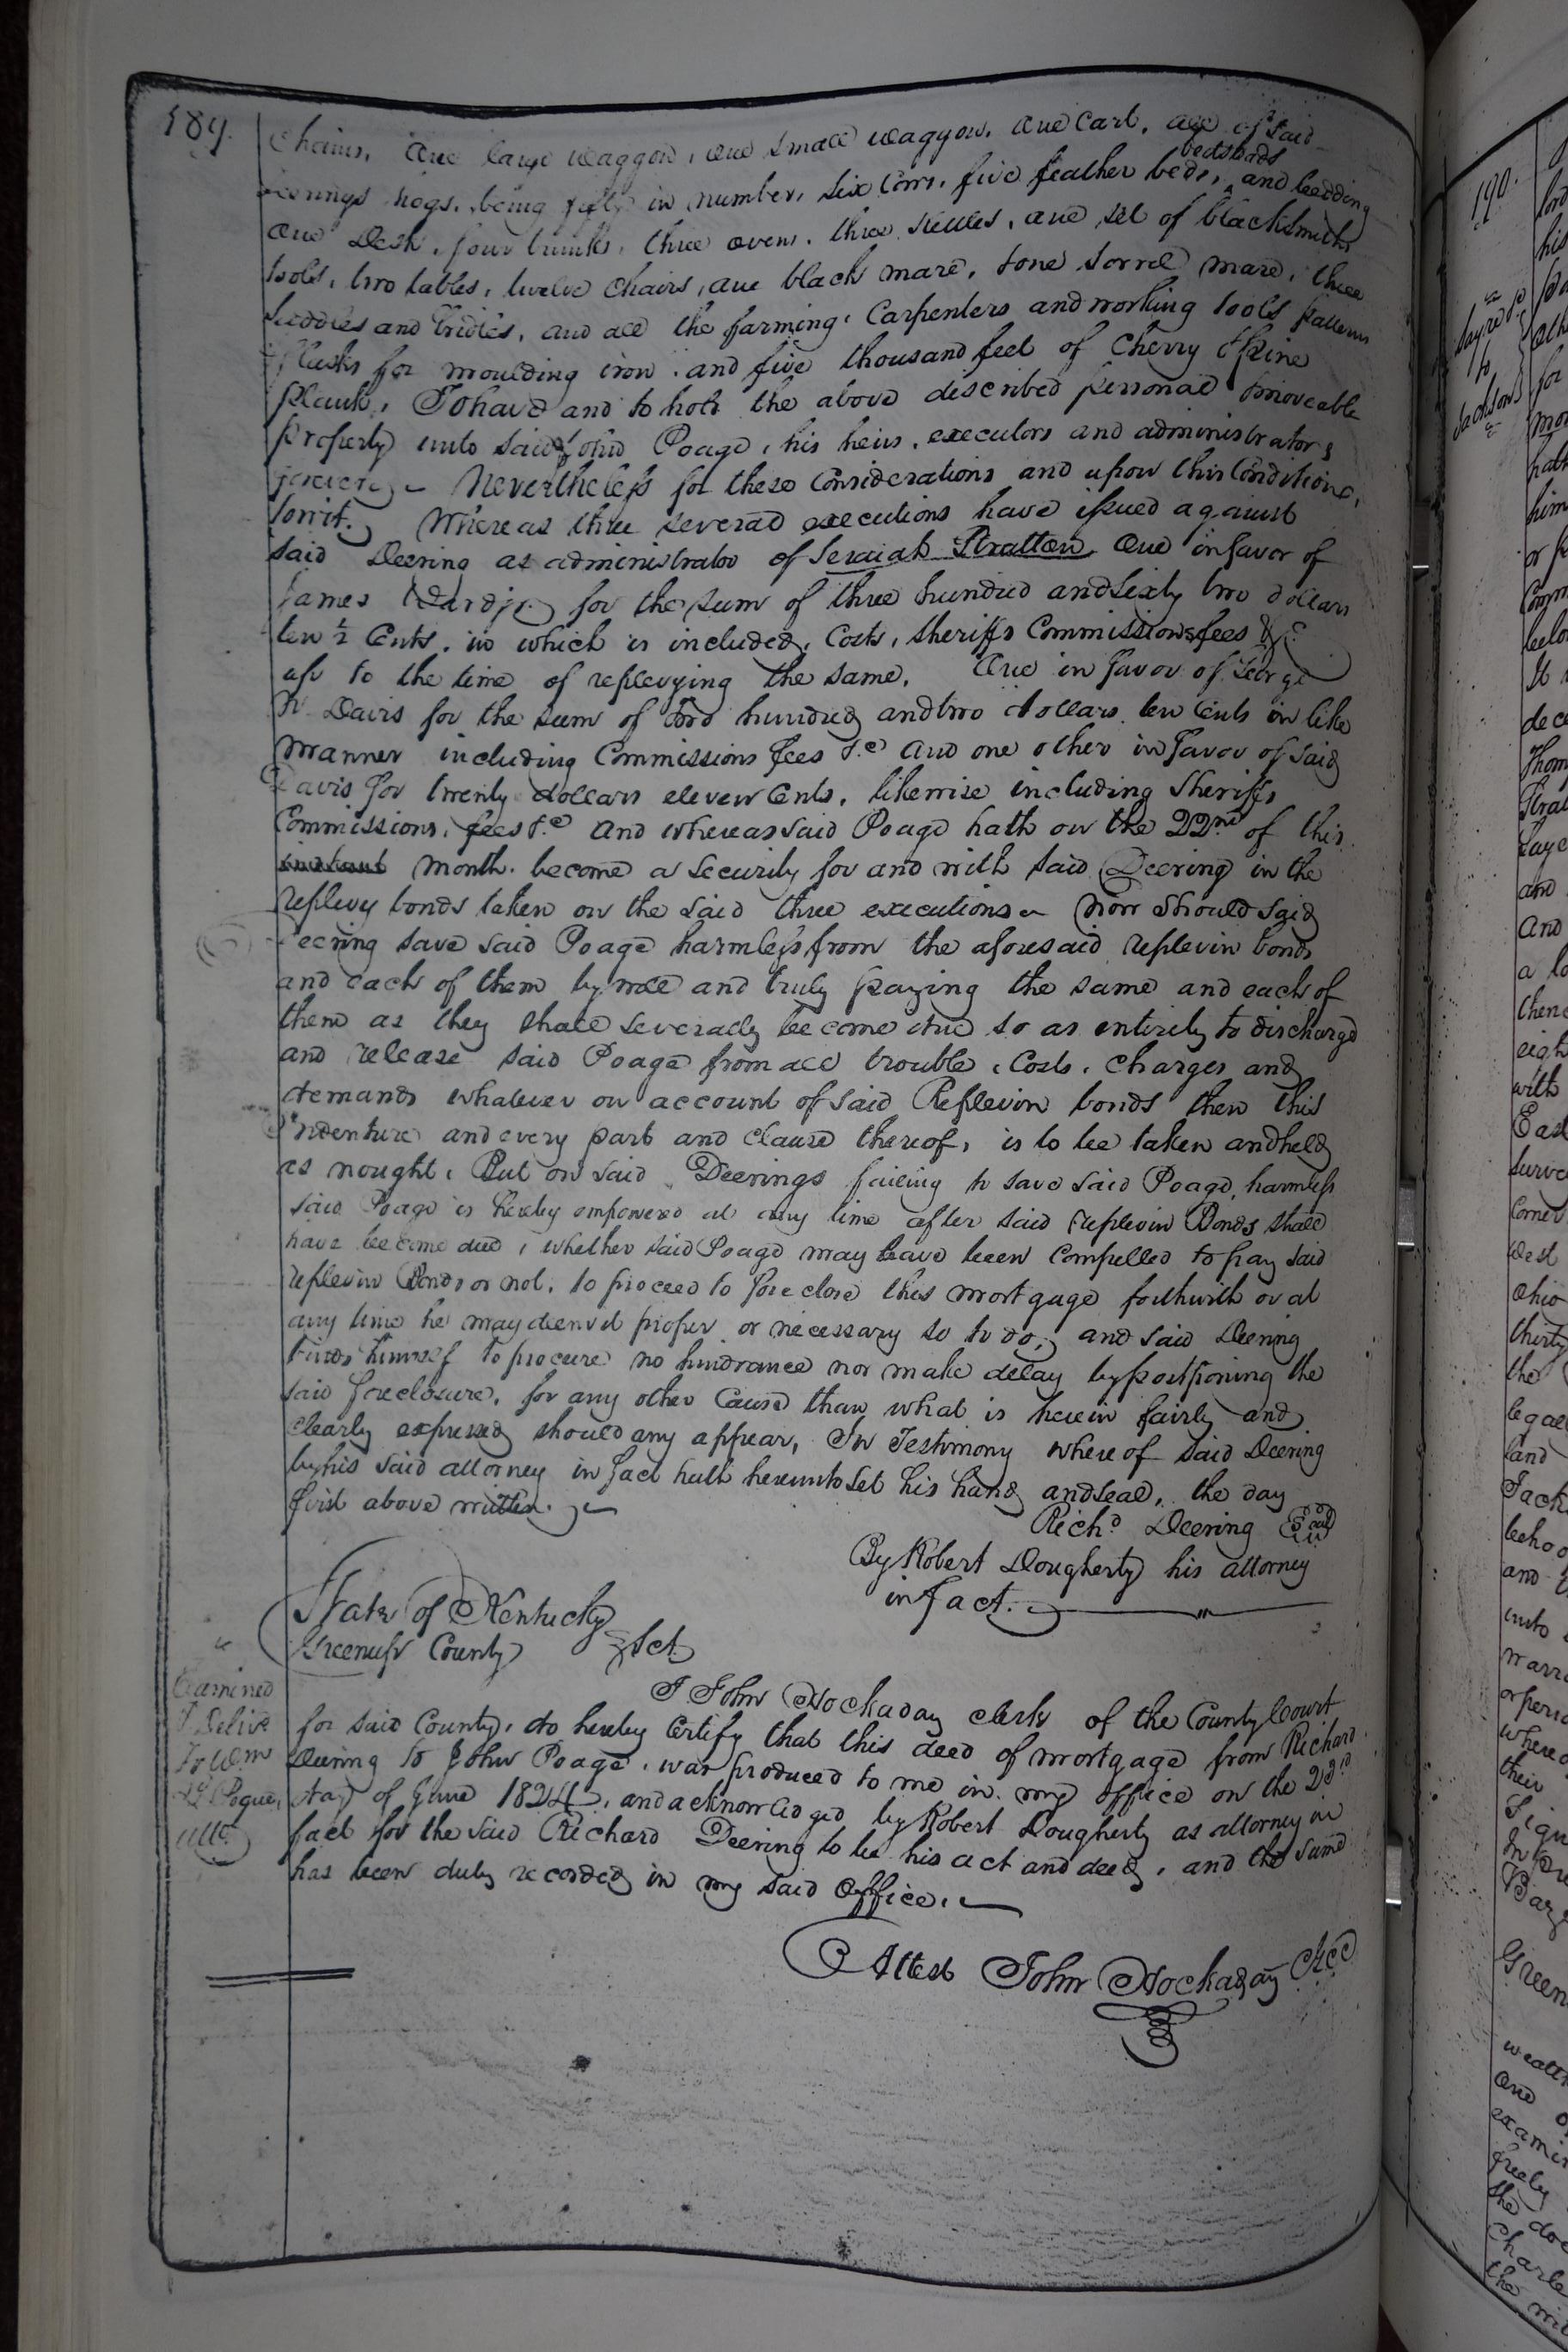 189.
Chains, one large waggon, one small waggon, one Cart, all of said
Deerings hogs, being fifty in number, six Cows, five feather beds, bedsteads and bedding
one Desk, four trunks, three ovens, three kettles, one set of blacksmiths
tools, two tables, twelve Chairs, one black mare, & one Sorrel mare, three
saddles and bridles, and all the farming, Carpenters and working tools patterns
flasks for moulding iron, and five thousand feet of Cherry & pine
plank, To have and to hold the above described personal & moveable
property unto said John Poage, his heirs, executors and administrators
forever, Nevertheless for these Considerations and upon this Conditions,
towit. Whereas three several executions have issued against
said Deering as administrator of Seraiah Stratton One in favor of
James Ward jr. for the sum of three hundred and sixty two dollars
ten ½ Cents, in which is included, Costs, sheriffs Commissions fees &c
up to the time of replevying the same. One in favor of George
N. Davis for the sum of two hundred and two dollars ten Cents in like
manner including Commissions fees &c And one other in favor of said
Davis for twenty dollars eleven Cents, likewise including Sheriffs
Commissions, fees &c And whereas said Poage hath on the 22nd of this
instant month become a security for and with said Deering in the
replevy bonds taken on the said three executions Now should said
Deering save said Poage harmless from the aforesaid replevin bonds
and each of them by well and truly paying the same and each of
them as they shall severally become due so as entirely to discharge
and release said Poage from all trouble, Costs, Charges and
demands whatever on account of said Replevin bonds then this
Indenture and every part and Clause thereof, is to be taken and held
as nought, But on said Deerings failing to save said Poage, harmless
said Poage is hereby empowered at any time after said replevin Bonds shall
have become due, whether said Poage may have been Compelled to pay said
replevin Bonds or not, to proceed to foreclose this mortgage forthwith or at
any time he may deem it proper or necessary so to do, and said Deering
binds himself to procure no hindrance nor make delay by postponing the
said foreclosure, for any other Cause than what is herein fairly and
Clearly expressed should any appear, In Testimony whereof said Deering
by his said attorney in fact hath hereunto set his hand and seal, the day
first above written.
Richd Deering Seal
By Robert Dougherty his attorney
in fact.
State of Kentucky
Greenup County Sct
I John Hockaday clerk of the County Court
for said County, do hereby Certify that this deed of mortgage from Richard
Deering to John Poage, was produced to me in my office on the 23rd
day of June 1824, and acknowledged by Robert Dougherty as attorney in
fact for the said Richard Deering to be his act and deed, and the same
has been duly recorded in my said Office.
Attest John Hockaday Clk
Examined
& Delivd
To Wm
Poague,
190.
Sayre
to
Jackson